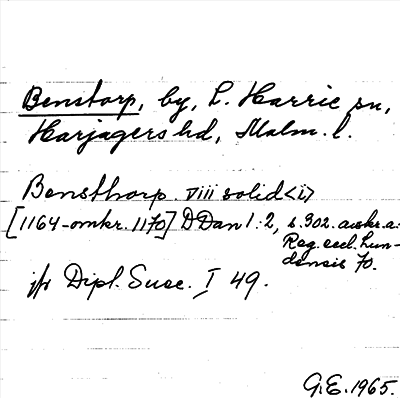 Benstorp, by, L. Harrie sn,
Harjagers hd, Malm. l.
Bensthorp. viii solid<i>
[1164-omkr. 1170] DDan 1:2, s. 302. avskr. a.
Reg. eccl. Lun-
densis 70.
jfr Dipl. Suec. I 49.
G.E. 1965.